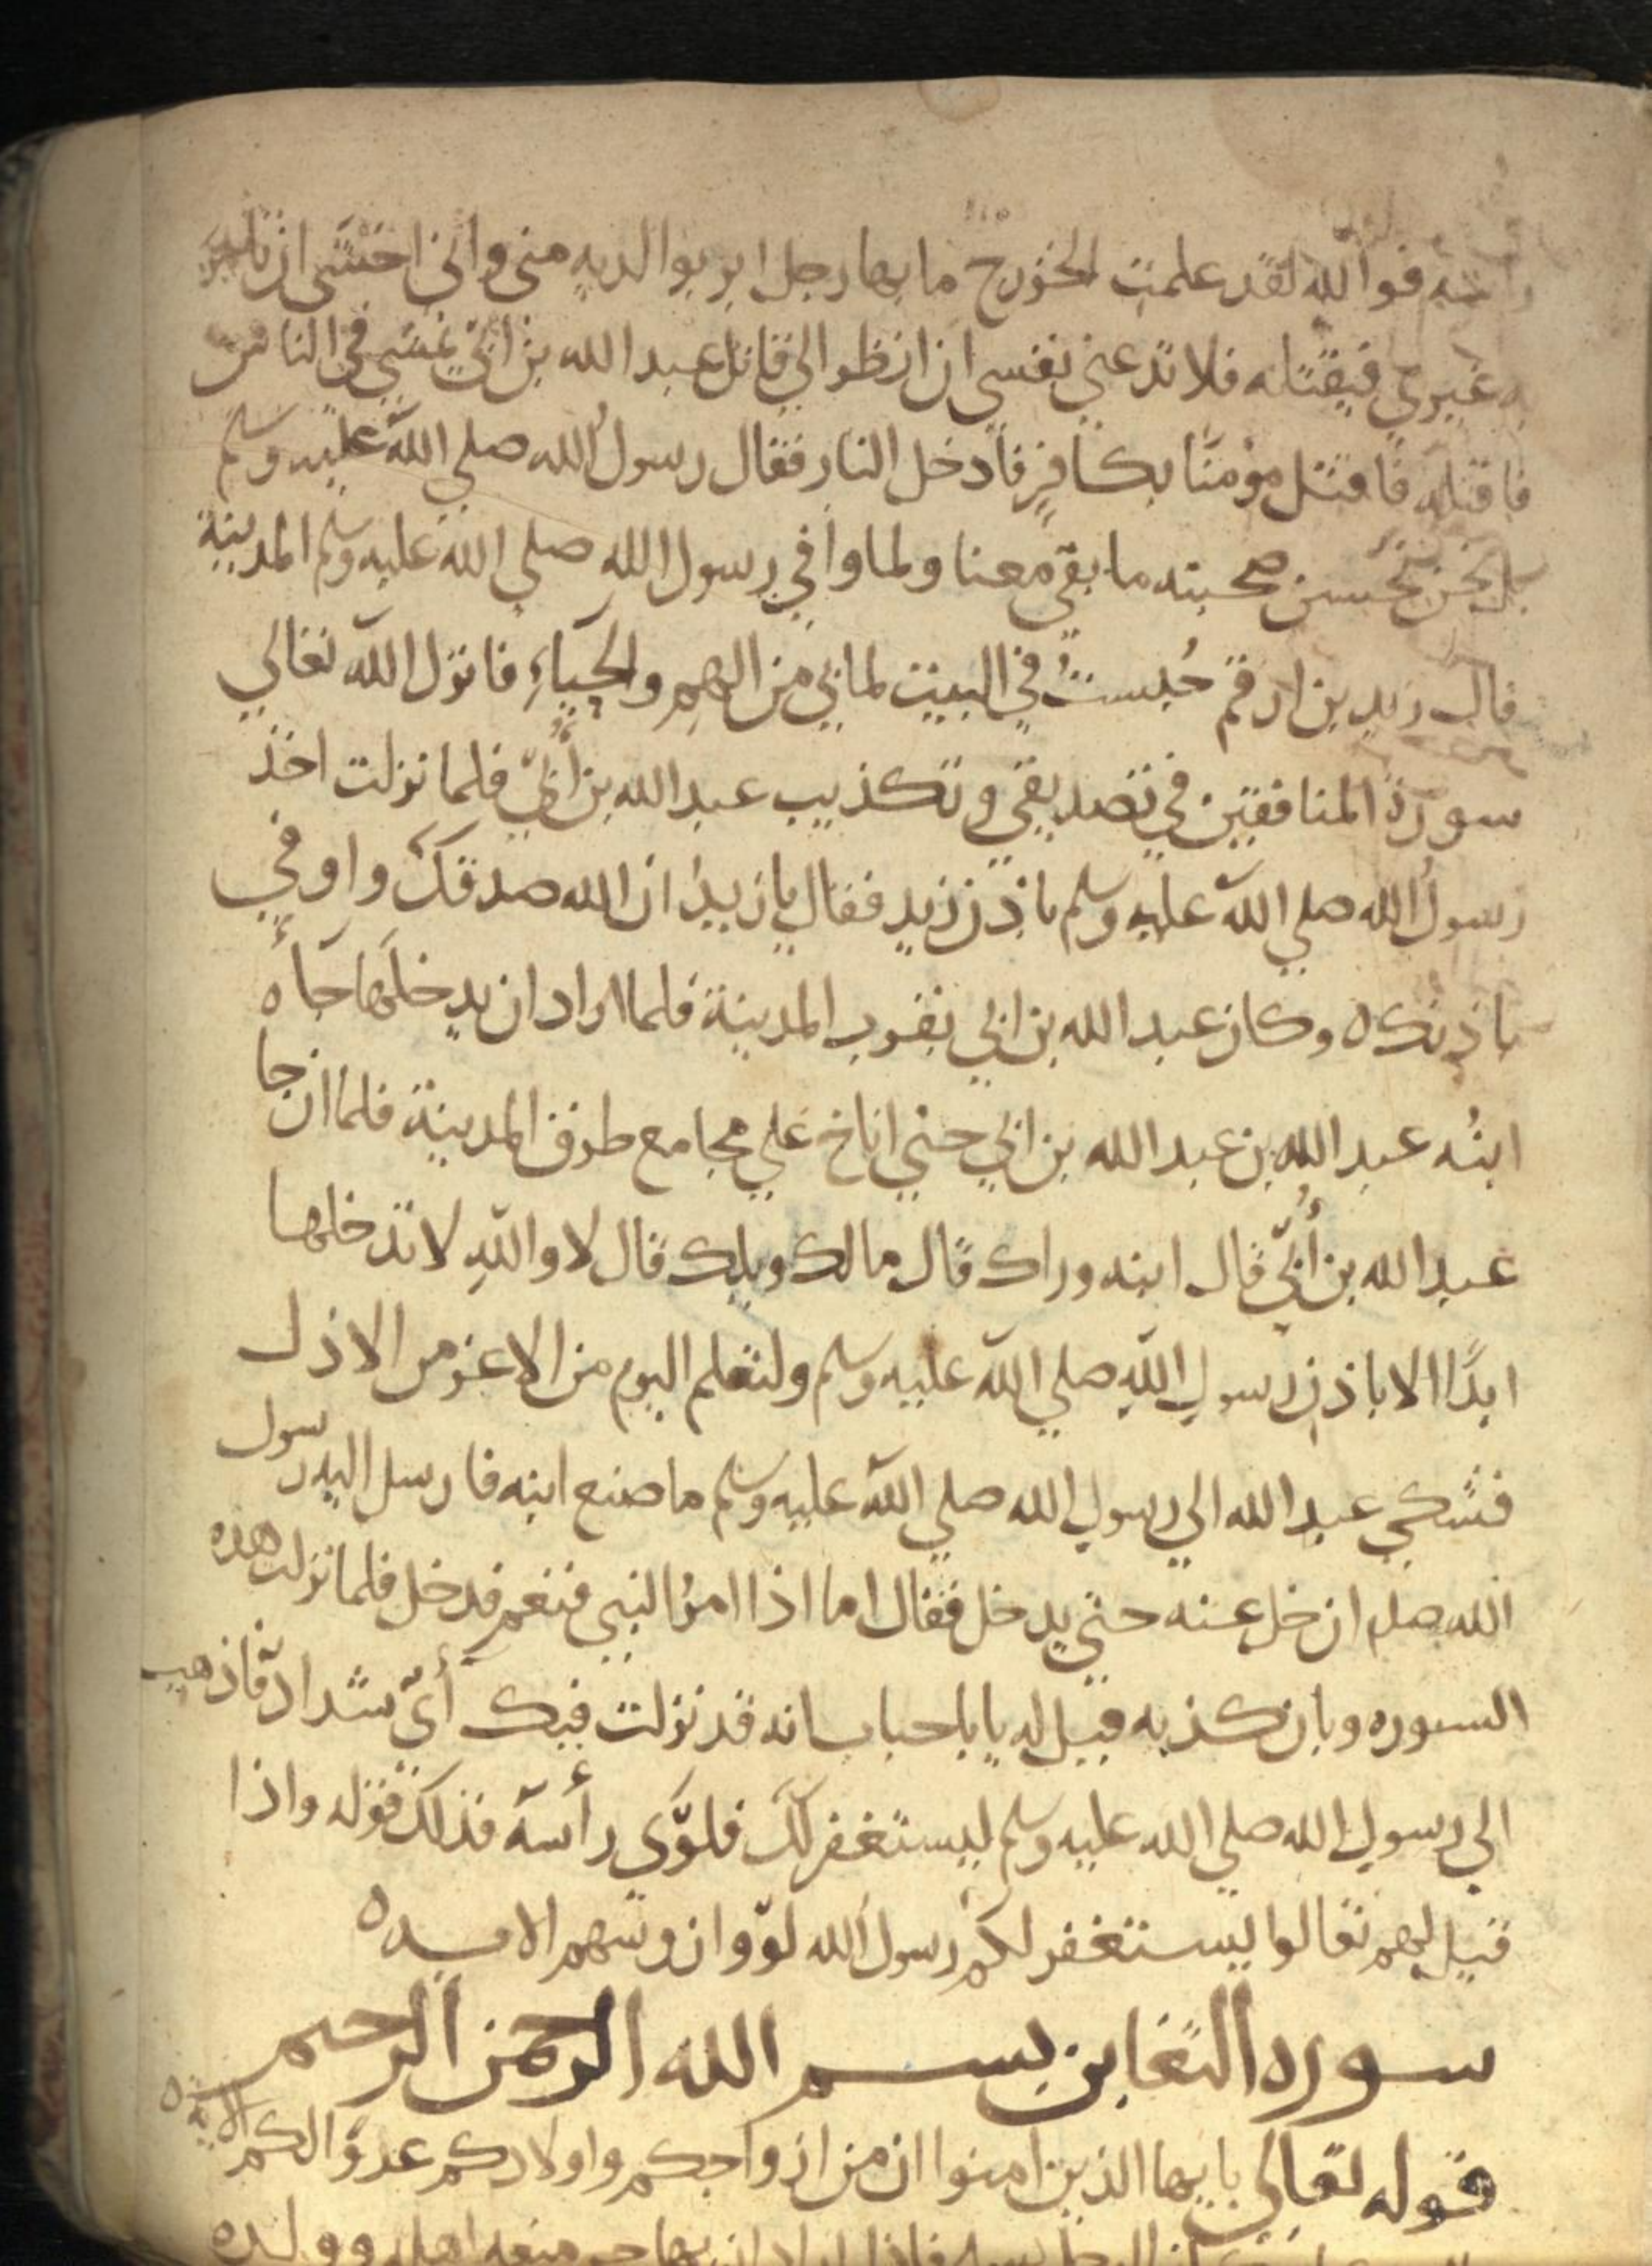 راسه فوالله لقد علمت الخزرج ما بها رجل ابر بوالديه مني واني اخشى ان تامر
به غيري فيقتله فلا تدعني نفسي ان انظر الي قاتل عبد الله بن ابي يمشي في الناس
فاقتله فاقتل مؤمنا بكافر فأدخل النار فقال رسول الله صلي الله عليه وسلم
بل نحن نحسن صحبته ما بقي معنا ولما وافي رسول الله صلي الله عليه وسلم المدينة
قال زيد بن ارقم جلست في البيت لما بي من الهم والحياء فانزل الله تعالي
سورة المنافقين في تصديقي وتكذيب عبد الله بن أبي فلما نزلت اخذ
رسول الله صلي الله عليه وسلم باذن زيد فقال يا زيد ان الله صدقك واوفي
باذنك ه وكان عبد الله بن ابي بقرب المدينة فلما اراد ان يدخلها جاه
ابنه عبد الله بن عبد الله بن ابي حتي اناخ علي مجامع طرق المدينة فلما ان جا
عبد الله بن أبي قال ابنه وراك قال مالك ويلك قال لا والله لا تدخلها
ابدا الا باذن رسول الله صلي الله عليه وسلم ولتعلم اليوم من الاعز من الاذل
فشكي عبد الله الي رسول الله صلي الله عليه وسلم ما صنع ابنه فارسل اليه رسول
الله صلم ان خل عنه حتي يدخل فقال اما اذا امر النبي فنعم فدخل فلما نزلت هذه
السوره وبان كذبه قيل له يا باحباب انه قد نزلت فيك آي شداد فاذهب
الي رسول الله صلي الله عليه وسلم ليستغفر لك فلوي رأسه فذلك قوله واذا
قيل لهم تعالوا يستغفر لكم رسول الله لووا روسهم الايه ه
سوره التغابن بسم الله الرحمن الرحيم
قوله تعالي يايها الذين امنوا ان من ازواجكم واولادكم عدوا لكم الاية ه